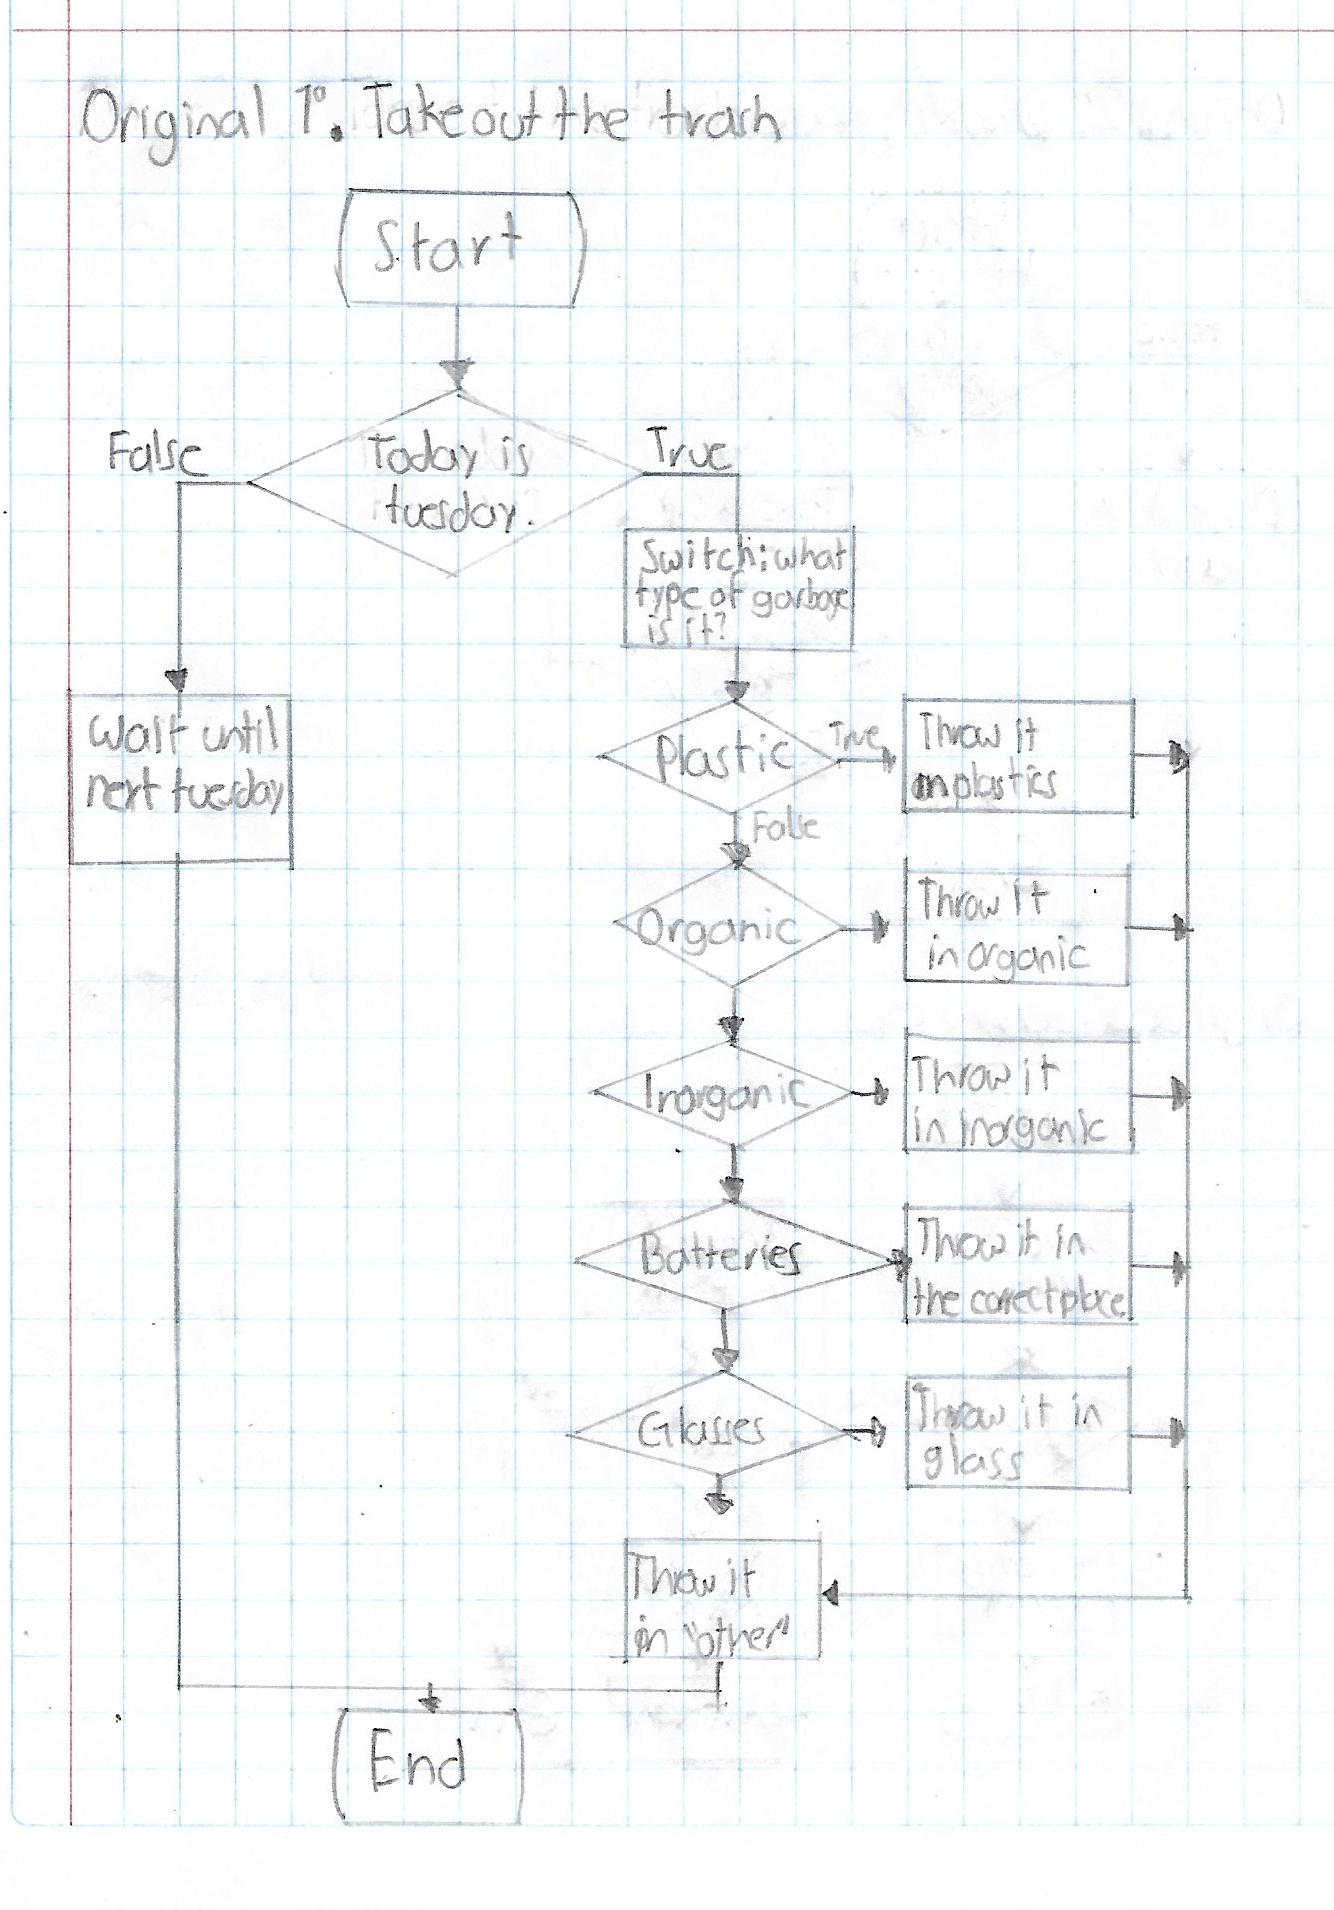 Original 1°. Take out the trash
Start
False
Today is
tuesday.
True
Switch: what
type of garbage
is it?
Wait until
next tuesday
Plastic
True
Throw it
in plastics
False
Organic
Throw It
in organic
Inorganic
Throw it
in Inorganic
Batteries
Throw it in
the correct place.
Glasses
Throw it in
glass
Throw it
in "other"
End